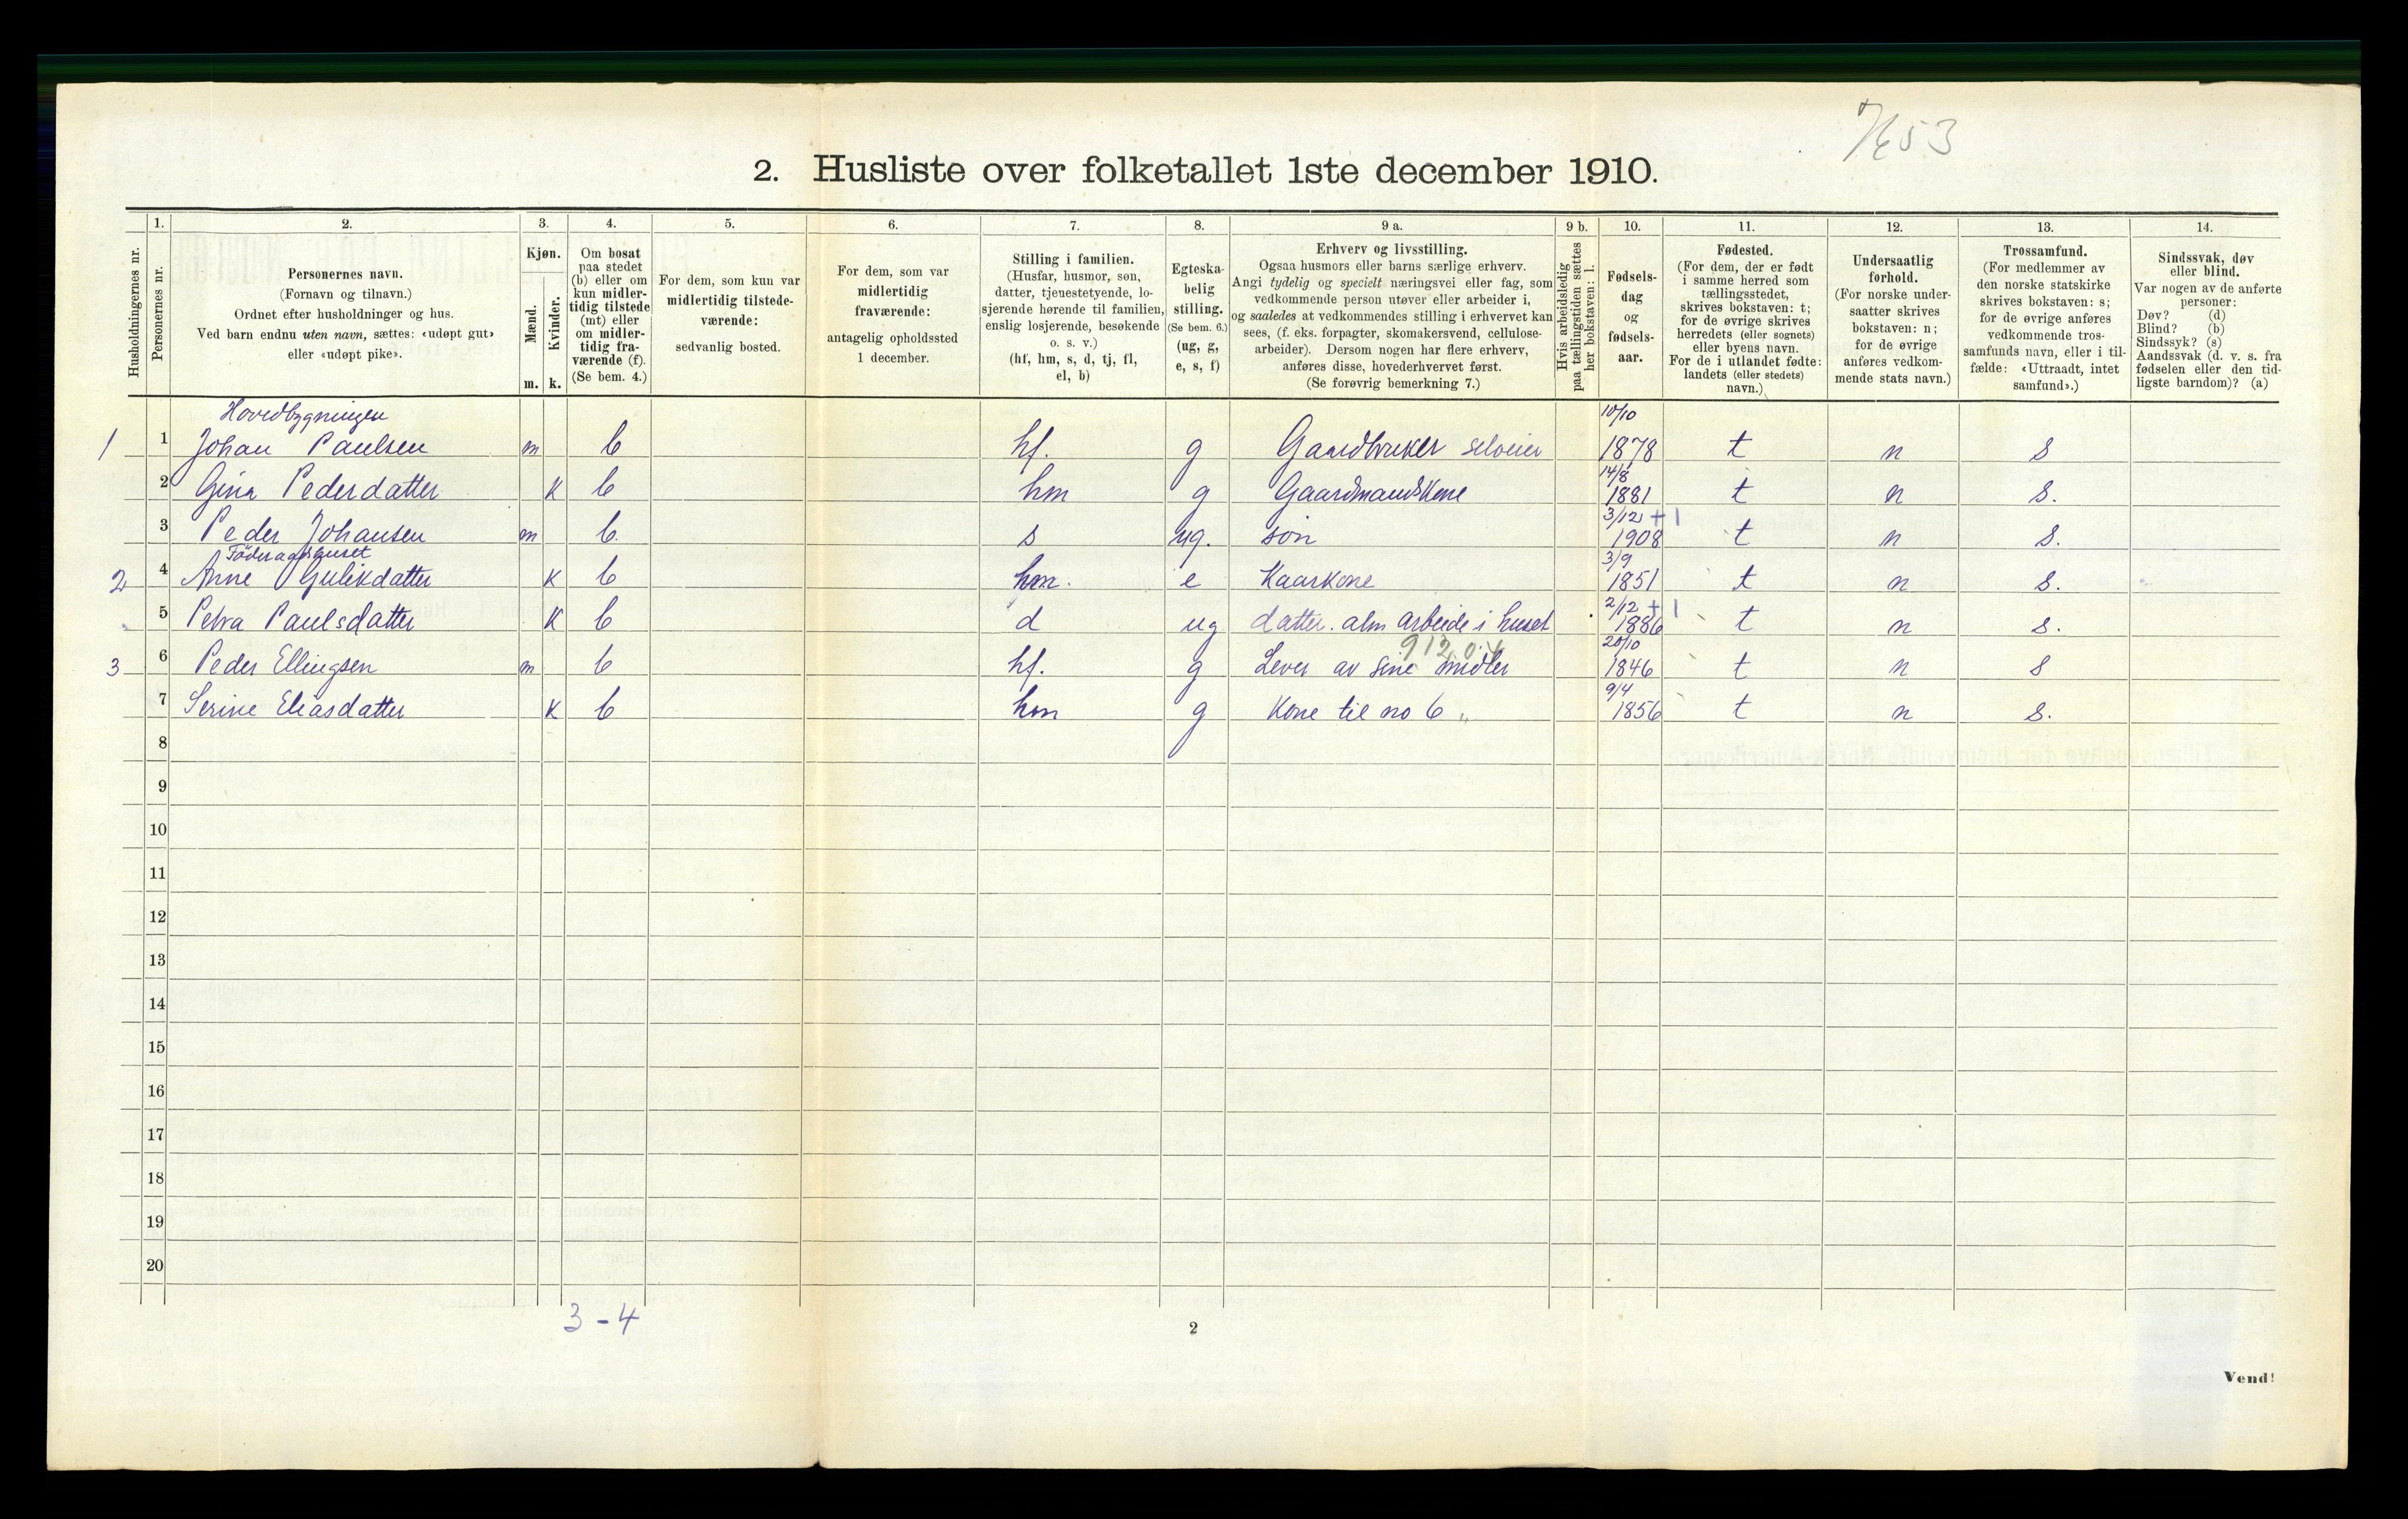 2. Husliste over folketallet 1ste december 1910.
1. 2. 3. 4. 5. 6. 7. 8. 9 a. 9 b. 10. 11. 12. 13. 14.
Husholdningernes nr.
Personernes nr.
Personernes navn.
(Fornavn og tilnavn.)
Ordnet efter husholdninger og hus.
Ved barn endnu uten navn, sættes: «udøpt gut»
eller «udøpt pike».
Kjøn.
Mænd.
Kvinder.
m. k.
Om bosat
paa stedet
(b) eller om
kun midler-
tidig tilstede
(mt) eller
om midler-
tidig fra-
værende (f).
(Se bem. 4.)
For dem, som kun var
midlertidig tilstede-
værende:
sedvanlig bosted.
For dem, som var
midlertidig
fraværende:
antagelig opholdssted
1 december.
Stilling i familien.
(Husfar, husmor, søn,
datter, tjenestetyende, lo-
sjerende hørende til familien,
enslig losjerende, besøkende
o. s. v.)
(hf, hm, s, d, tj, fl,
el, b)
Egteska-
belig
stilling.
(Se bem. 6.)
(ug, g,
e, s, f)
Erhverv og livsstilling.
Ogsaa husmors eller barns særlige erhverv.
Angi tydelig og specielt næringsvei eller fag, som
vedkommende person utøver eller arbeider i,
og saaledes at vedkommendes stilling i erhvervet kan
sees, (f. eks. forpagter, skomakersvend, cellulose-
arbeider). Dersom nogen har flere erhverv,
anføres disse, hovederhvervet først.
(Se forøvrig bemerkning 7.)
Hvis arbeidsledig
paa tællingstiden sættes
her bokstaven: l.
Fødsels-
dag
og
fødsels-
aar.
Fødested.
(For dem, der er født
i samme herred som
tællingsstedet,
skrives bokstaven: t;
for de øvrige skrives
herredets (eller sognets)
eller byens navn.
For de i utlandet fødte:
landets (eller stedets)
navn.)
Undersaatlig
forhold.
(For norske under-
saatter skrives
bokstaven: n;
for de øvrige
anføres vedkom-
mende stats navn.)
Trossamfund.
(For medlemmer av
den norske statskirke
skrives bokstaven: s;
for de øvrige anføres
vedkommende tros-
samfunds navn, eller i til-
fælde: «Uttraadt, intet
samfund».)
Sindssvak, døv
eller blind.
Var nogen av de anførte
personer:
Døv? (d)
Blind? (b)
Sindssyk? (s)
Aandssvak (d. v. s. fra
fødselen eller den tid-
ligste barndom)? (a)
Hovedbygningen
10/10
1 1 Johan Paulsen m b hf. g Gaardbruker selveier 1878 t n s
14/8
2 Gina Pedersdatter k b hm g Gaardmandskone 1881 t n s.
3/12 + 1
3 Peder Johansen m b s ug. søn 1908 t n s.
Föderaadshuset
3/9
2 4 Anne Gulikdatter k b hm. e Kaarkone 1851 t n s.
2/12 + 1
5 Petra Paulsdatter k b d ug datter. alm arbeide i huset 1886 t n s.
20/10
3 6 Peder Ellingsen m b hf. g Lever av sine midler 1846 t n s
9/4
7 Serine Eliasdatter k b hm g Kone til no 6 1856 t n s.
8
9
10
11
12
13
14
15
16
17
18
19
20
3 - 4
2
Vend!